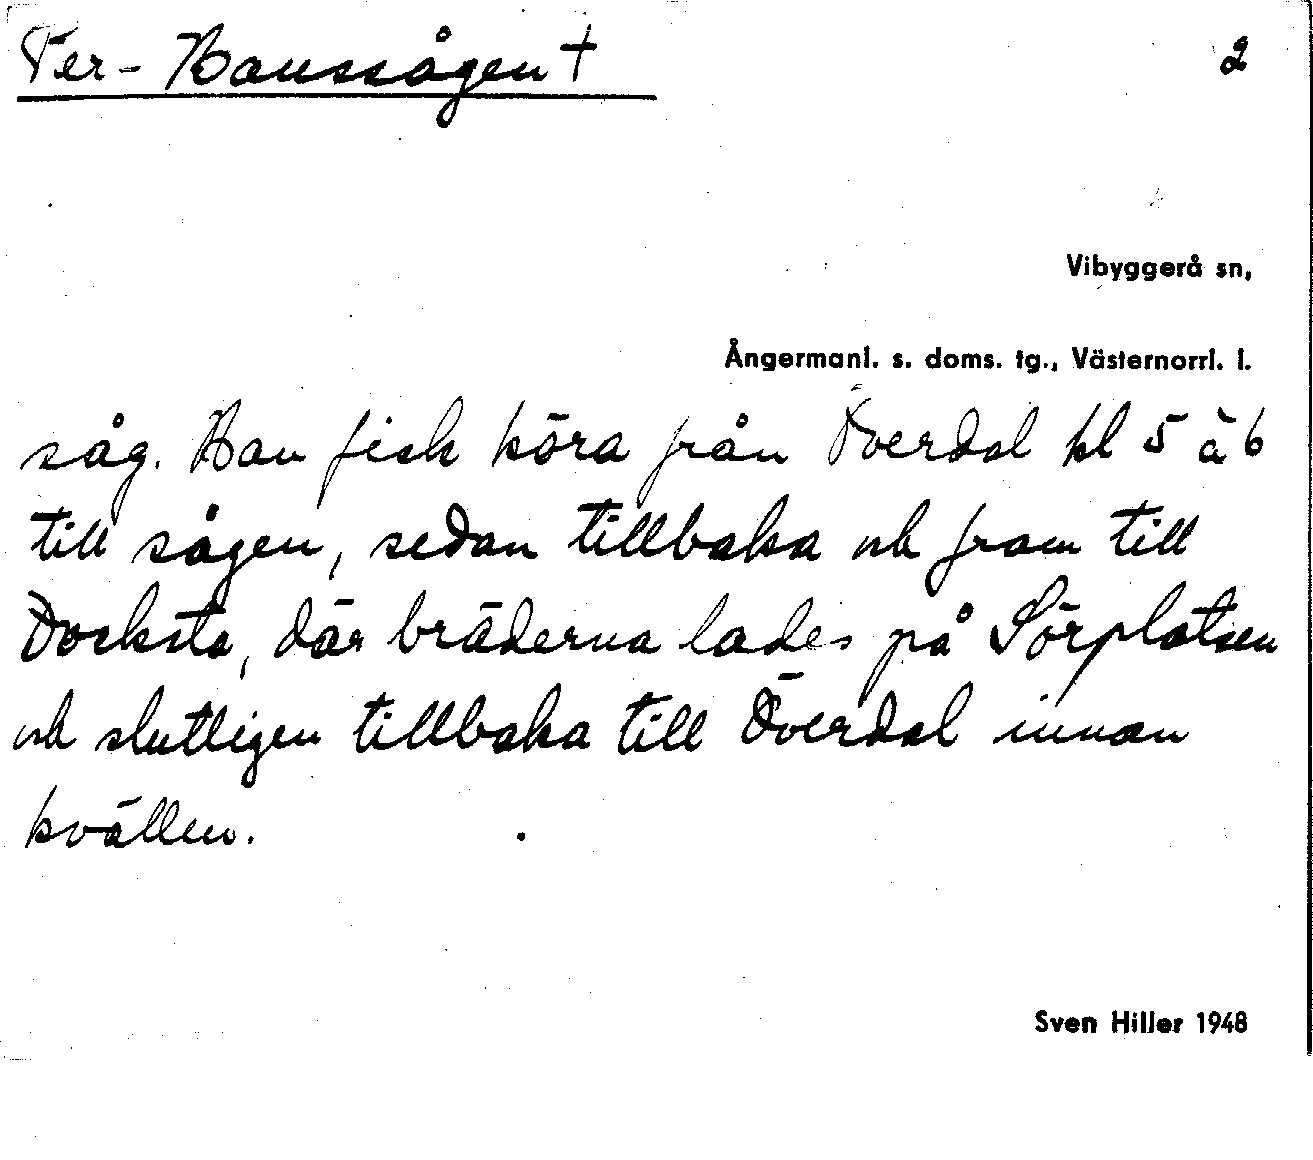 Per-Hanssågen †
2
Vibyggerå sn,
Ångermanl. s. doms. tg., Västernorrl. l.
såg. Han fick köra från Överdal kl 5 à 6
till sågen, sedan tillbaka och fram till
Docksta, där bräderna lades på Sörplatsen
och slutligen tillbaka till Överdal innan
kvällen.
Sven Hiller 1948